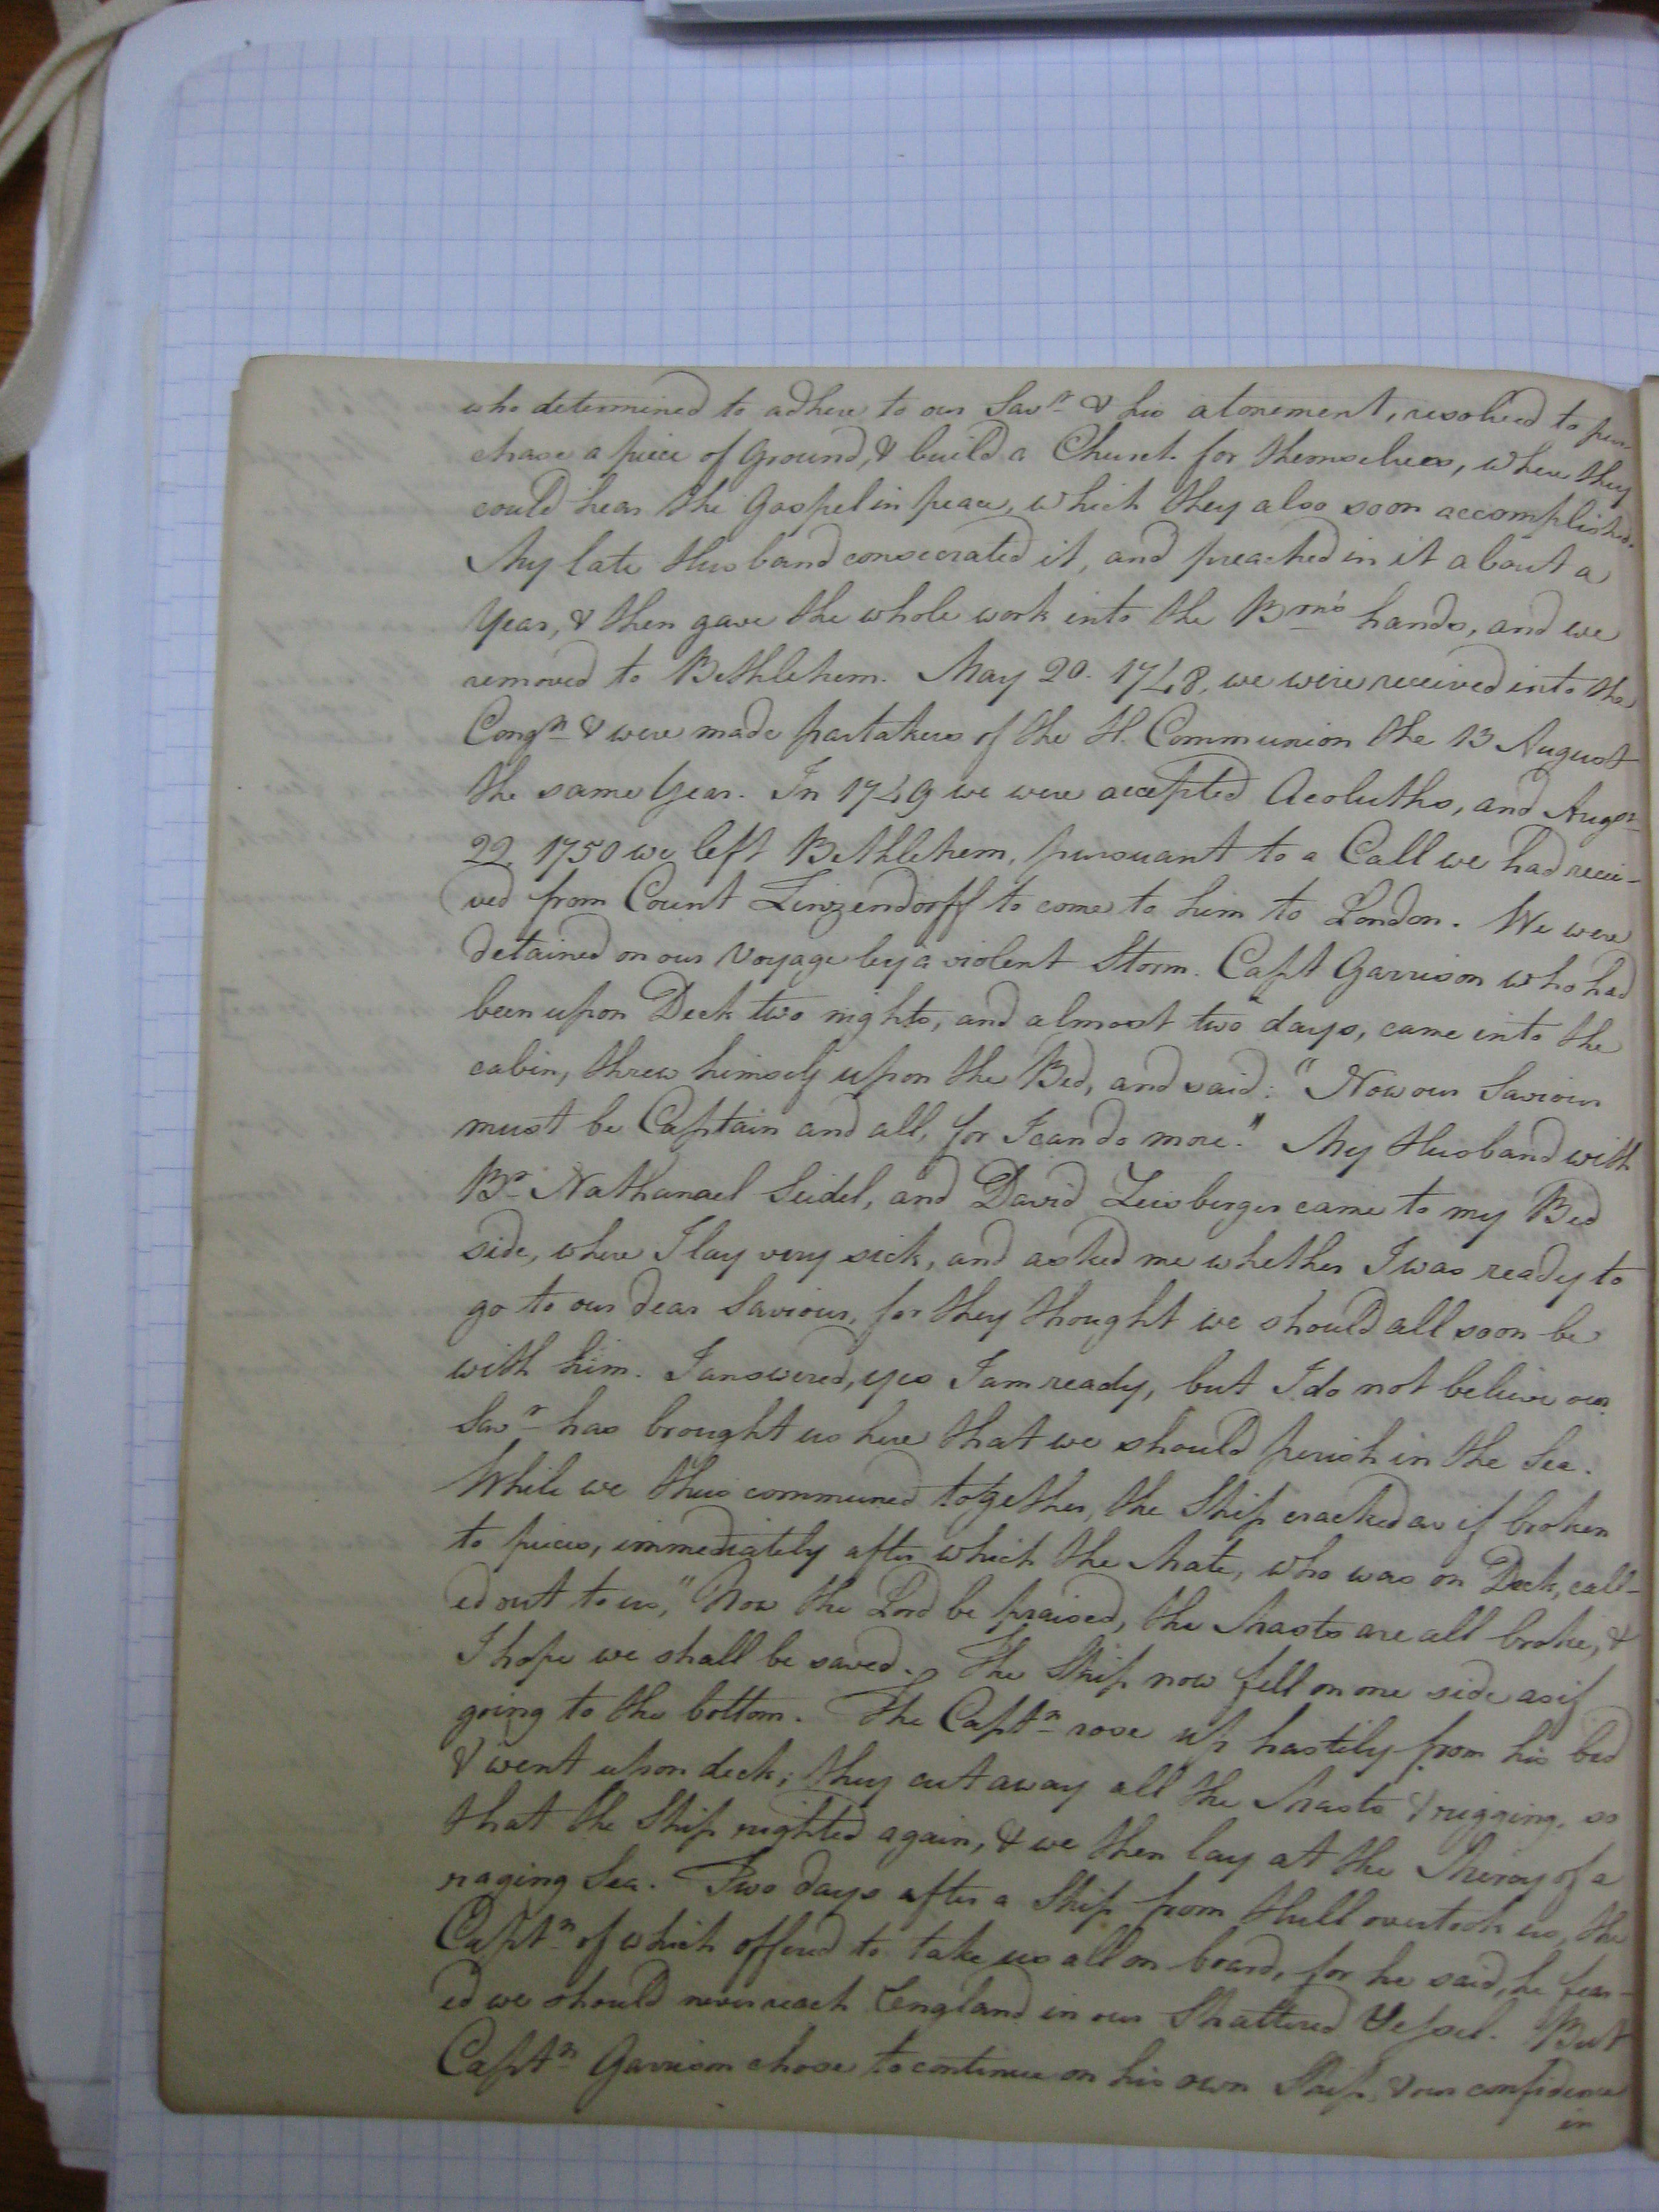 who determined to adhere to our Savr & his atonement, resolved to pur-
chase a piece of Ground, & build a Church for themselves, where they
could hear the Gospel in peace, which they also soon accomplished.
My late Husband consecrated it, and preached in it about a
Year, & then gave the whole work into the Brn's hands, and we
removed to Bethlehem. May 20. 1748, we were received into the
Congn & were made partakers of the H. Communion the 13 August
the same Year. In 1749 we were accepted Acoluths, and Augst
22. 1750 we left Bethlehem, pursuant to a Call we had recei-
ved from Count Zinzendorff to come to him to London. We were
detained on our Voyage by a violent Storm. Capt Garrison who had
been upon Deck two nights, and almost two days, came into the
cabin, threw himself upon the Bed, and said: "Now our Saviour
must be Captain and all, for I can do more." My Husband with
Br Nathanael Seidel, and David Zeisberger came to my Bed
side, where I lay very sick, and asked me whether I was ready to
go to our dear Saviour, for they thought we should all soon be
with him. I answered, yes I am ready, but I do not believe our
Savr has brought us here that we should perish in the Sea.
While we thus communed together, the Ship cracked as if broken
to pieces, immediately after which the Mate, who was on Deck, call-
ed out to us, "Now the Lord be praised, the Masts are all broke, &
I hope we shall be saved." The Ship now fell on one side as if
going to the bottom. The Captn rose up hastily from his bed
& went upon deck; they cut away all the Masts & rigging, so
that the Ship righted again, & we then lay at the Mercy of a
raging Sea. Two days after a Ship from Hull overtook us, the
Captn of which offered to take us all on board, for he said, he fear-
ed we should never reach England in our Shattered Vessel. But
Captn Garrison chose to continue on his own Ship, & our confidence
in